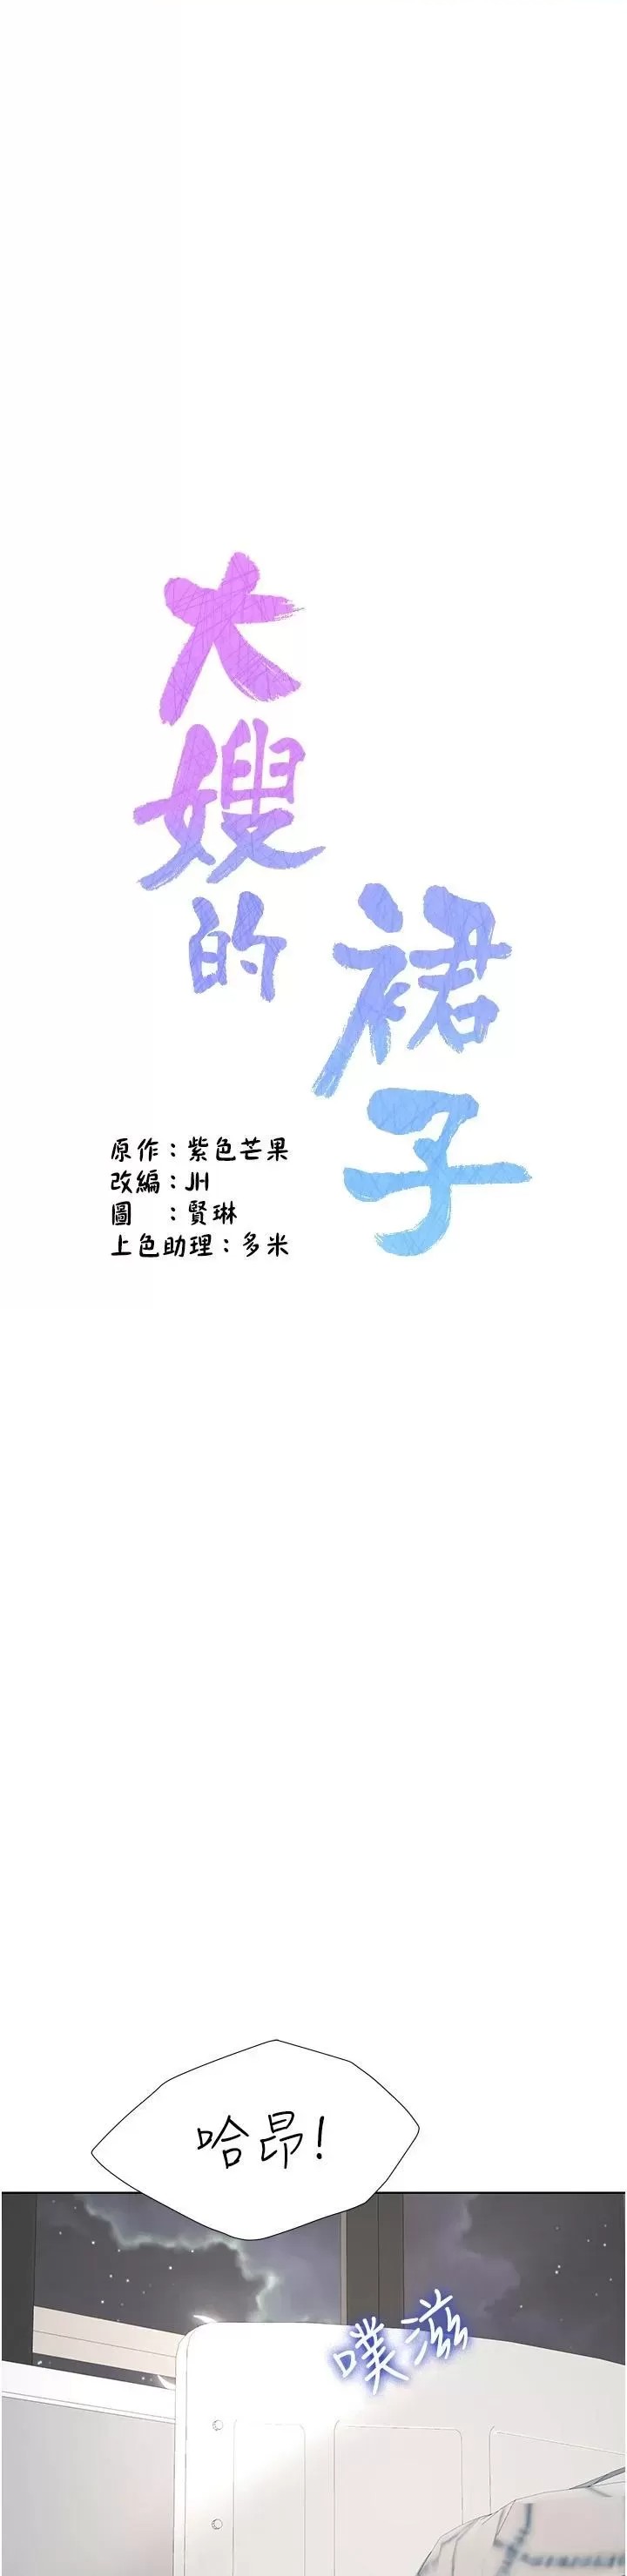 大嫂的
裙子
原作：紫色芒果
改編：JH
圖　：賢琳
上色助理：多米
哈昂！
噗滋